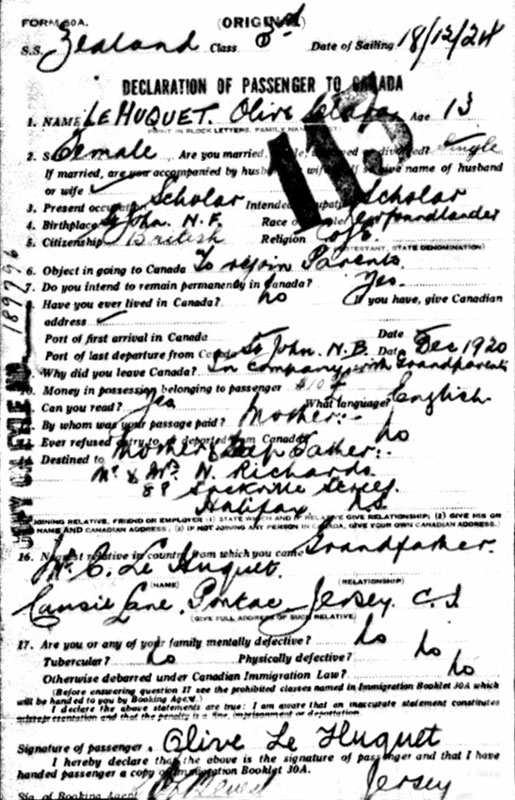 FORM 30A. (ORIGINAL)
S.S. Zealand Class 3rd Date of Sailing 18/12/24
DECLARATION OF PASSENGER TO CANADA
1. NAME LE HUQUET. Olive Age 13
PRINT IN BLOCK LETTERS, FAMILY NAME FIRST
115
2. Sex Female Are you married, Single
If married, are you accompanied by husband or wife? If so give name of husband
or wife
3. Present occupation Scholar Intended occupation Scholar
4. Birthplace St John. N.F. Race or People Newfoundlander
5. Citizenship British Religion C of E.
(PROTESTANT, STATE DENOMINATION)
6. Object in going to Canada To rejoin Parents.
7. Do you intend to remain permanently in Canada? Yes.
Have you ever lived in Canada? no If you have, give Canadian
address
Port of first arrival in Canada Date
Port of last departure from Canada St John. N.B. Date Dec 1920
Why did you leave Canada? In company with Grandparents
10. Money in possession belonging to passenger $10
Can you read? Yes What language? English.
By whom was your passage paid? Mother:-
Ever refused entry to or deported from Canada? no
Destined to Mother & Step Father:-
Mr & Mrs N. Richards.
Sackville Street.
Halifax N.S.
JOINING RELATIVE, FRIEND OR EMPLOYER (1) STATE WHICH AND IF RELATIVE GIVE RELATIONSHIP; (2) GIVE HIS OR
NAME AND CANADIAN ADDRESS. (3) IF NOT JOINING ANY PERSON IN CANADA, GIVE YOUR OWN CANADIAN ADDRESS.)
16. Nearest relative in country from which you came Grandfather.
Le Huquet.
(NAME) (RELATIONSHIP)
Lane, Pontac Jersey. C.I
(GIVE FULL ADDRESS OF SUCH RELATIVE)
17. Are you or any of your family mentally defective? no
Tubercular? no Physically defective? no
Otherwise debarred under Canadian Immigration Law? no
(Before answering question 17 see the prohibited classes named in Immigration Booklet 30A which
will be handed to you by Booking Agent.)
I declare the above statements are true: I am aware that an inaccurate statement constitutes
misrepresentation and that the penalty is a fine, imprisonment or deportation.
Signature of passenger. Olive Le Huquet
I hereby declare that the above is the signature of passenger and that I have
handed passenger a copy of Immigration Booklet 30A.
Sig. of Booking Agent Jersey
189796